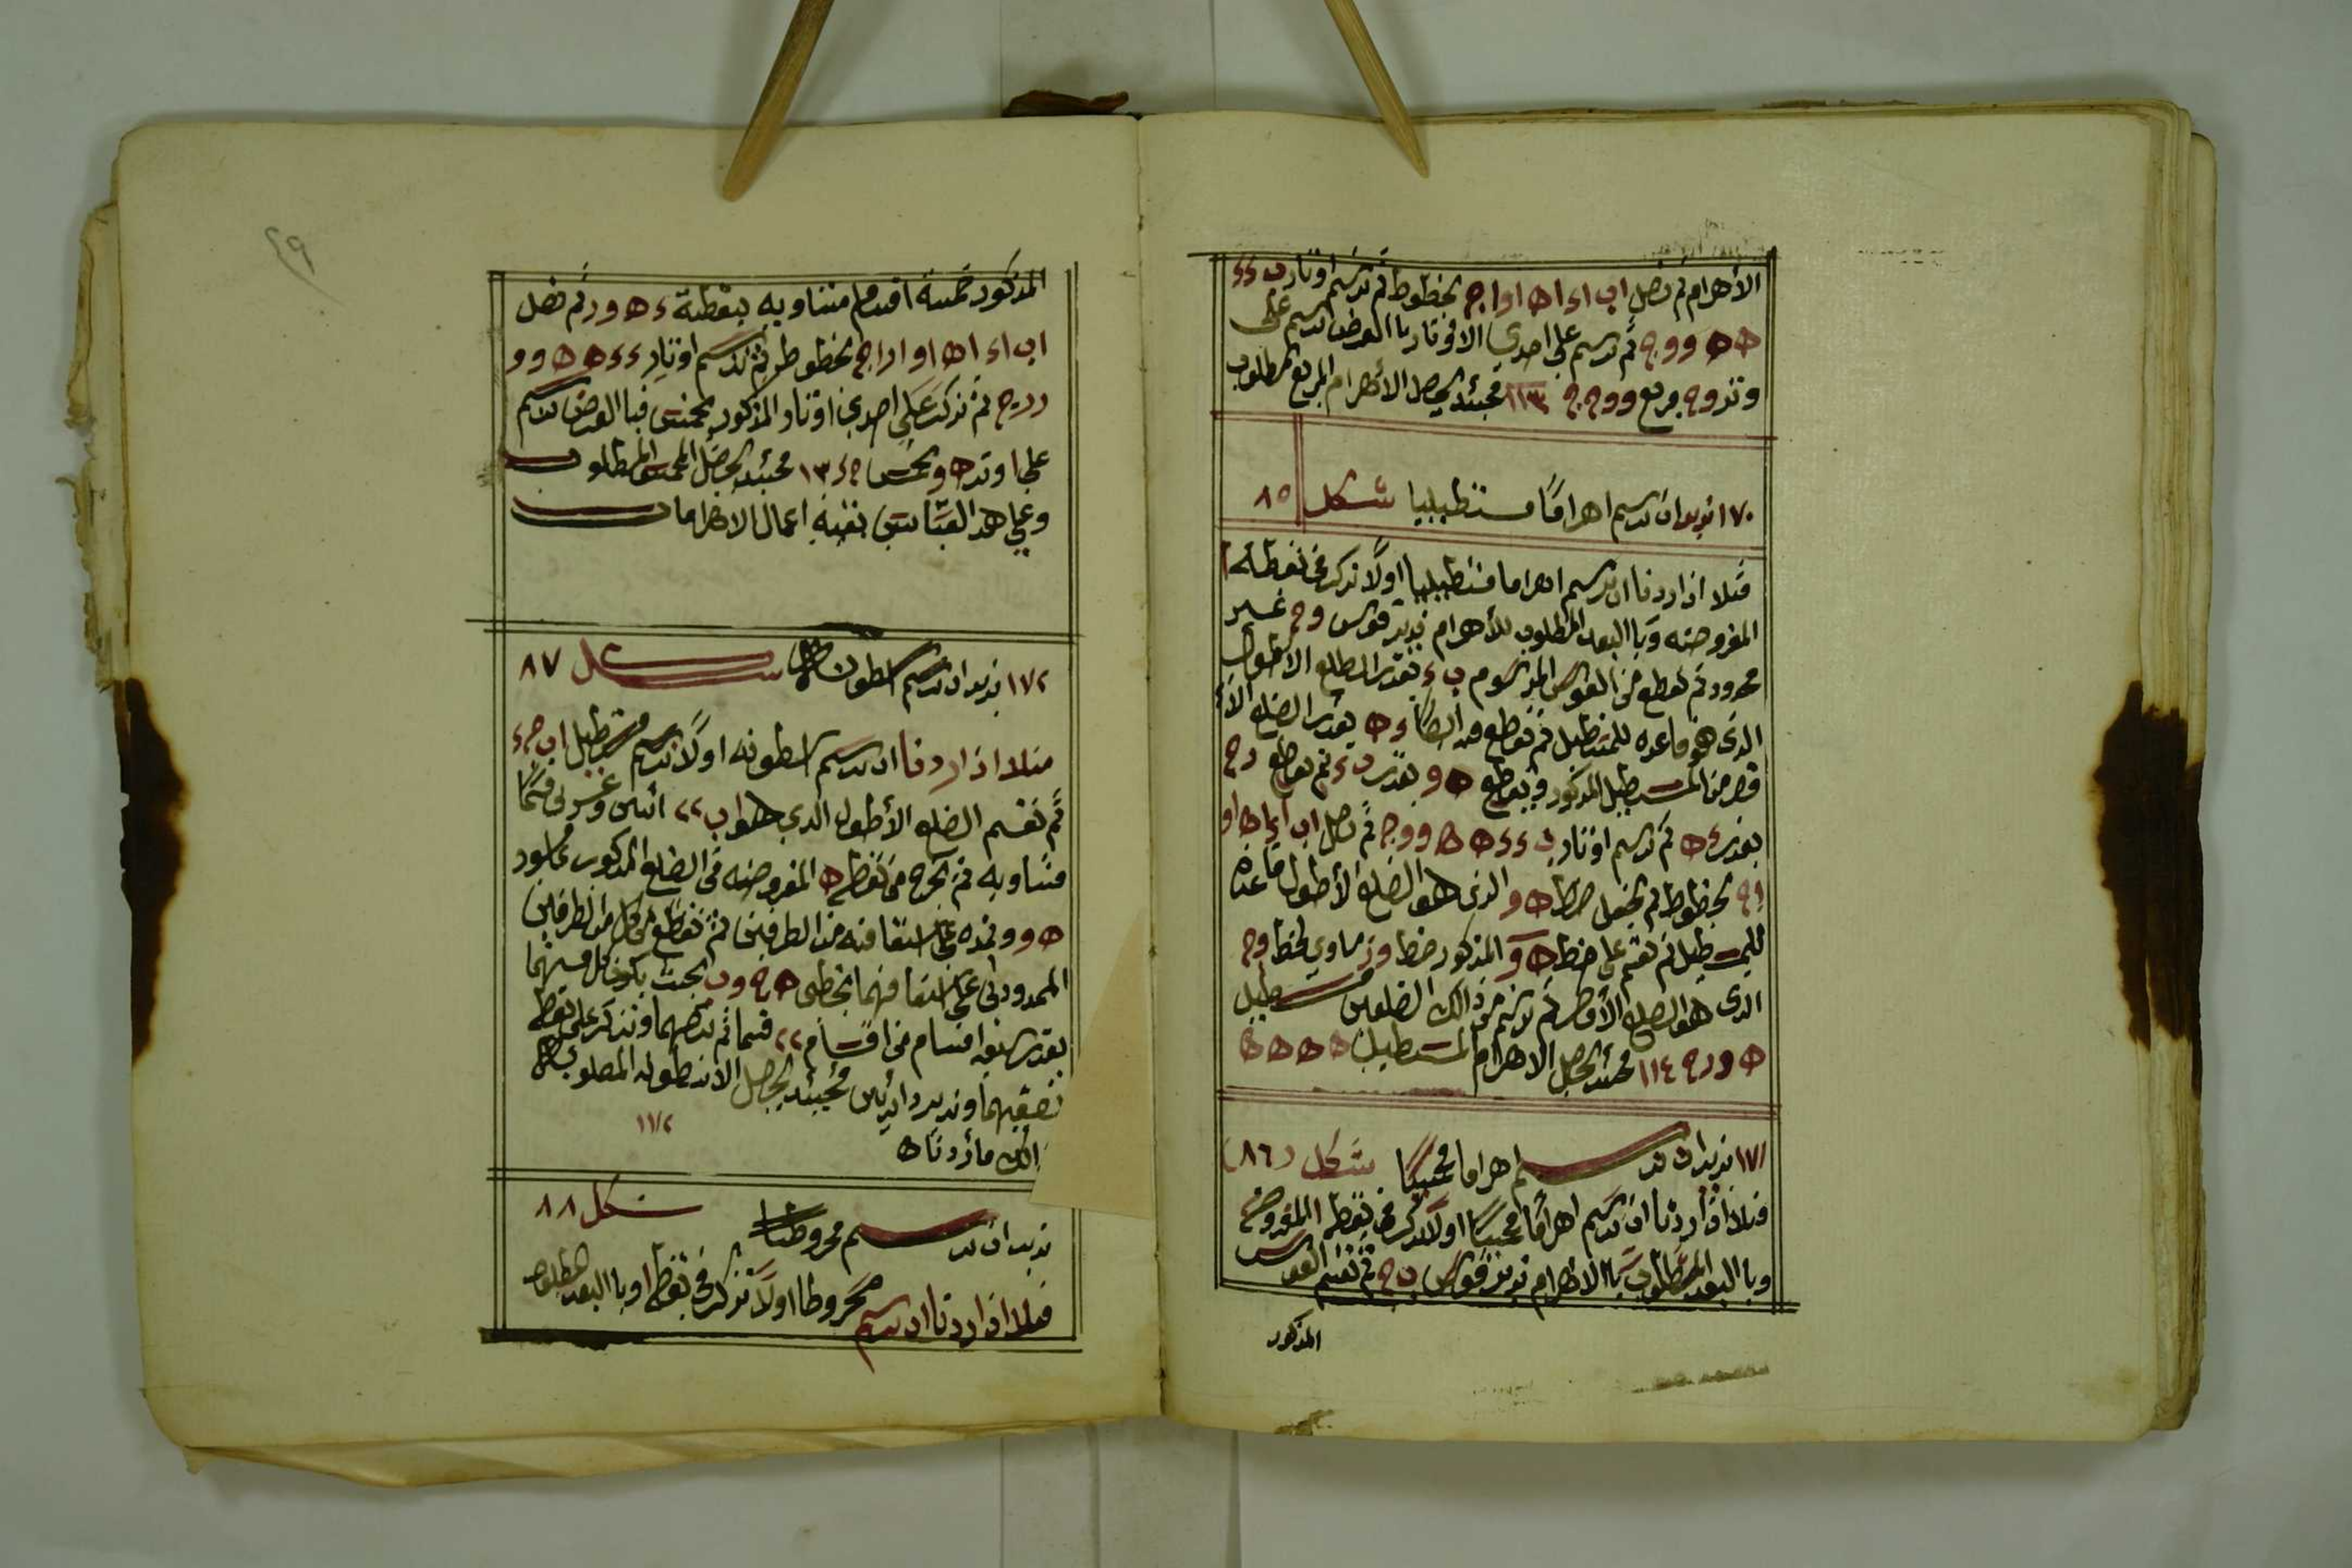 الأهرام ثم نصل اب اء اه او اج بخطوط ثم نرسم اوتار ب ء ء
ه ه و و ج ثم نرسم على احدي الاوتار بالفرض نرسم على
وتر و ج مربع و و ج ج ١١٣ فحينئذ يحصل الأهرام المربع المطلوب
١٧٠ نريد ان نرسم اهرامًا مستطيليا شكل ٨٥
مثلا اذا اردنا ان نرسم اهراما مستطيليا اولًا نركز في نقطة ا
المفروضة وبالبعد المطلوب للأهرام ندير قوس و ج غير
محدود ثم نقطع من القوس المرسوم ب ء بقدر الضلع الاطول
الذي هو قاعده للمستطيل ثم نقطع منه ايضًا ء ه بقدر الضلع الأ
قصر من المستطيل المذكور ونقطع ه و بقدر ب ء ثم نقطع و ج
بقدر ء ه ثم نرسم اوتار ب ء ء ه ه و و ج ثم نصل اب اء اه او
اج بخطوط ثم نجعل خط ه و الذي هو الضلع الأطول قاعده
للمستطيل ثم نقيم على خط ه و المذكور خط و ز مساوي لخط و ج
الذي هو الضلع الأقصر ثم نرسم من ذالك الضلعين مستطيل
ه و ر ح ١١٤ فحينئذ يحصل الاهرام المستطيل ه ه ه ه
١٧١ نريد ان نرسم اهراما مخمسًا شكل (٨٦)
مثلا اذا اردنا ان نرسم اهرامًا مخمسًا اولًا نركز في نقطة ا المفروضة
وبالبعد المطلوب بالاهرام ندير قوس ب ج ثم نقسم القوس
المذكور
٢٩
المذكور خمسة اقسام متساويه بنقطة ء ه و ر ثم نصل
اب اء اه او ار اج بخطوط ثم نرسم اوتار ء ء ه ه و و
ر ر ج ثم نركب على احدي اوتار المذكور مخمس فبالفرض نرسم
على وتر ه و مخمس ١٣ فحينئذ يحصل المخمس المطلوب
وعلى هذ القياس بقيه اعمال الاهرامات
١٧٢ نريد ان نرسم اسطوانة شكل ٨٧
مثلا اذا اردنا ان نرسم اسطونه اولًا نرسم مستطيل اب ج ء
ثم نقسم الضلع الأطول الذي هو اب ٢٢ اثنين وعشرين قسمًا
متساويه ثم نخرج من نقطة ه المفروضه في الضلع المذكور عامود
ه و ونمده على استقامته من الطرفين ثم نقطع من كل من الطرفين
الممدودان على استقامتهما بخطى ه ح و ب بحيث يكون كل منهما
بقدر سبعه اقسام من اقسام ٢٢ قسما ثم ننصفهما ونركز على نقطة
نصفيهما وندير دائرتين فحينئذ يحصل الأسطونه المطلوب
١١٧٢
ذالك ما اردناه
نريد ان نرسم مخروطًا شكل ٨٨
مثلا اذا اردنا ان نرسم مخروطا اولًا نركز في نقطة ا وبالبعد المطلوب